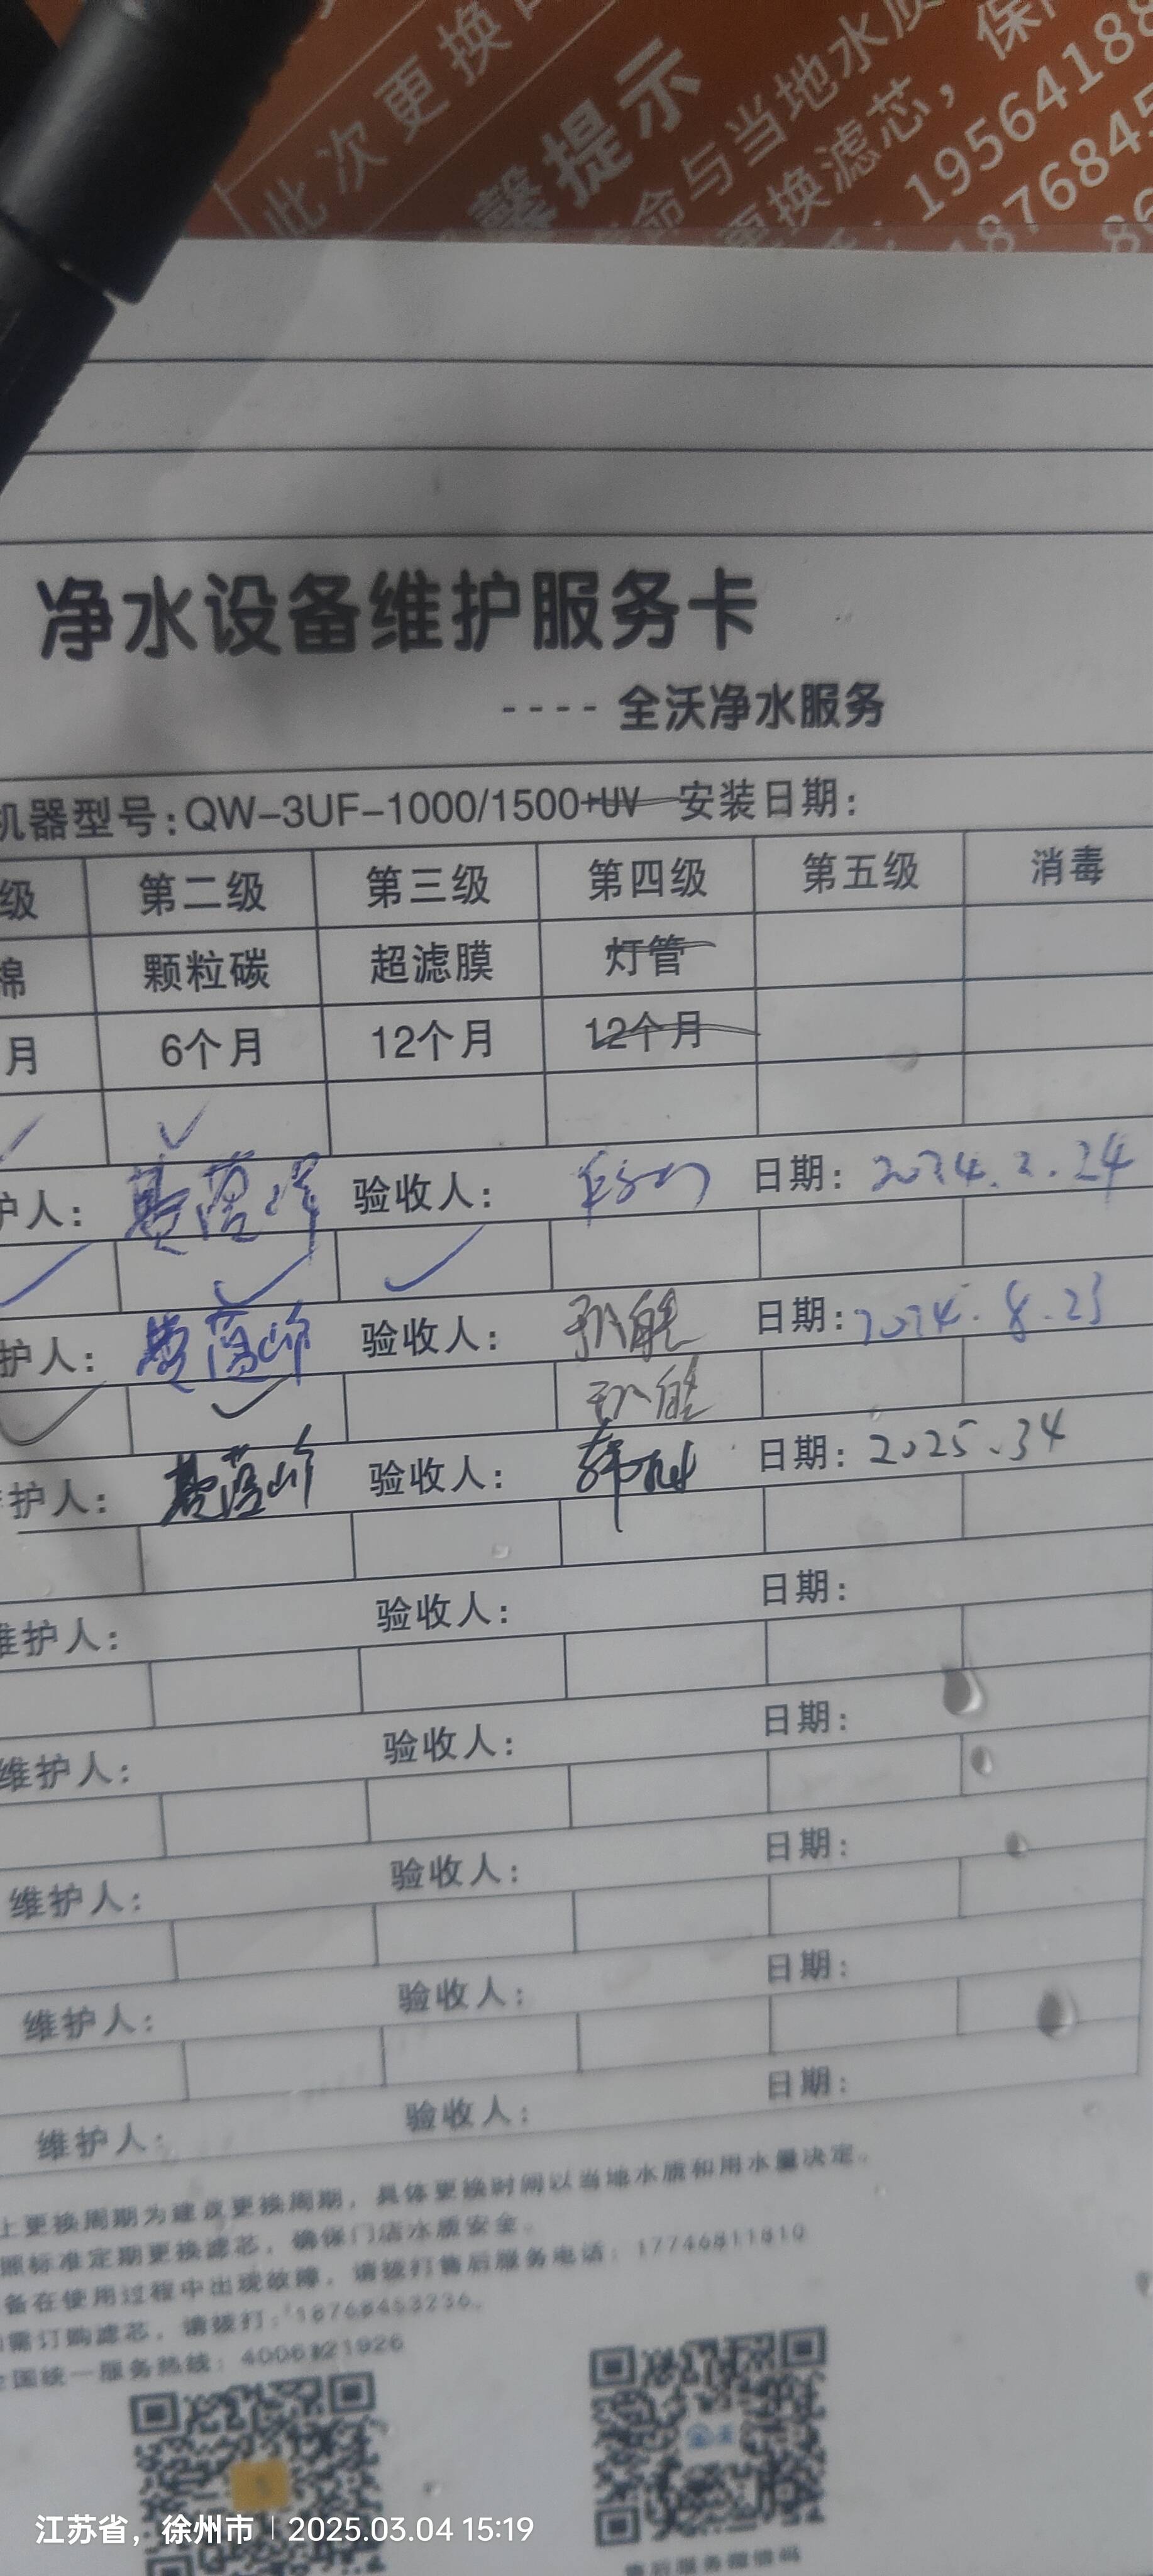 此次更换
馨提示
命与当地水质
更换滤芯，保
19564188
1876845
净水设备维护服务卡
---- 全沃净水服务
机器型号：QW-3UF-1000/1500+UV 安装日期：
级 第二级 第三级 第四级 第五级 消毒
棉 颗粒碳 超滤膜 灯管
月 6个月 12个月 12个月
✓ ✓
护人： 验收人： 日期：2024.2.24
✓ ✓ ✓
护人： 验收人： 日期：2024.8.23
✓ ✓
护人： 验收人： 日期：2025.34
维护人： 验收人： 日期：
维护人： 验收人： 日期：
维护人： 验收人： 日期：
维护人： 验收人： 日期：
维护人： 验收人： 日期：
上更换周期为建议更换周期，具体更换时间以当地水质和用水量决定。
照标准定期更换滤芯，确保门店水质安全。
备在使用过程中出现故障，请拨打售后服务电话：17746811810
需订购滤芯，请拨打：18768453236。
全国统一服务热线：4006821926
售后服务微信码
江苏省，徐州市 | 2025.03.04 15:19